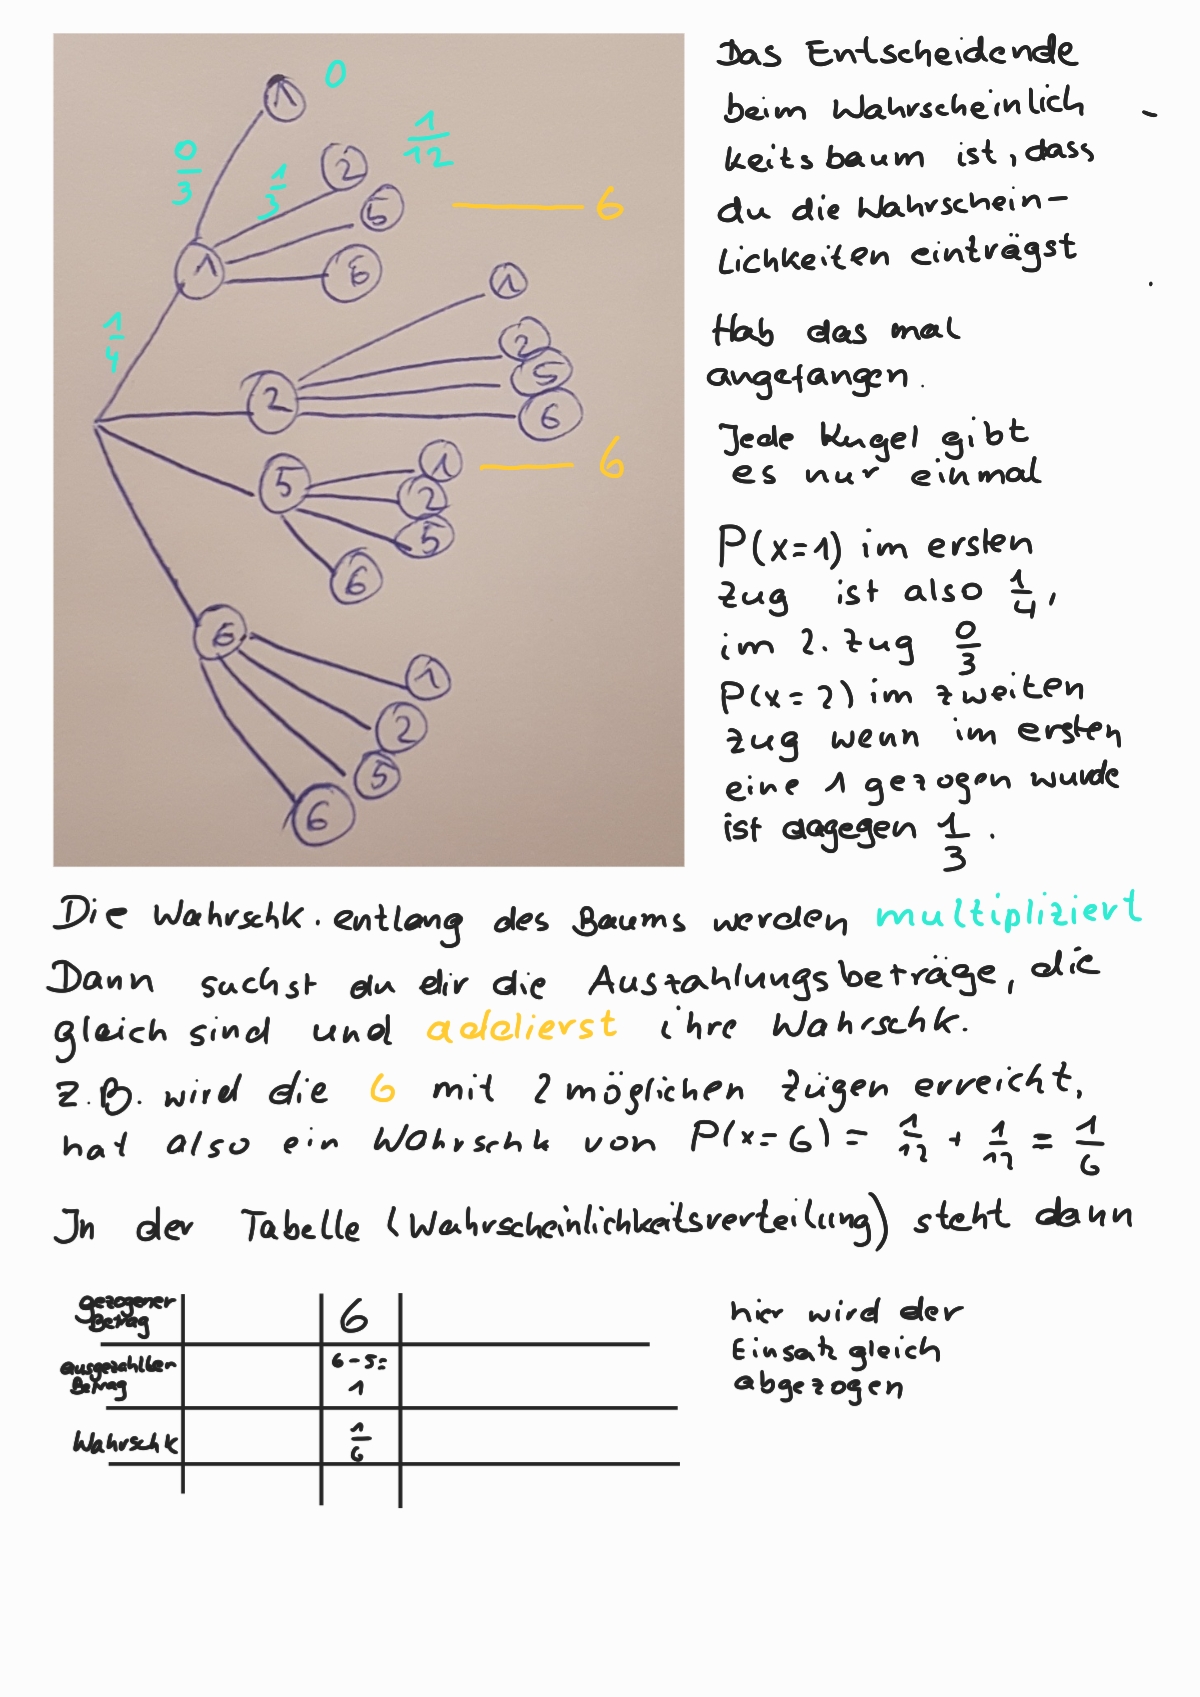 0
1
0
3
1
3
2
1
12
5
6
1
6
1
4
1
2
5
6
2
1
6
5
2
5
6
6
1
2
5
6
Das Entscheidende
beim Wahrscheinlich -
keitsbaum ist, dass
du die Wahrschein-
lichkeiten einträgst
.
Hab das mal
angefangen.
Jede Kugel gibt
es nur einmal
P(x=1) im ersten
Zug ist also 1/4,
im 2. Zug 0/3
P(x=2) im zweiten
Zug wenn im ersten
eine 1 gezogen wurde
ist dagegen 1/3.
Die Wahrschk. entlang des Baums werden multipliziert
Dann suchst du dir die Auszahlungsbeträge, die
gleich sind und addierst ihre Wahrschk.
Z.B. wird die 6 mit 2 möglichen Zügen erreicht,
hat also ein Wahrschk von P(x=6) = 1/12 + 1/12 = 1/6
In der Tabelle (Wahrscheinlichkeitsverteilung) steht dann
gezogener
Betrag
6
ausgezahlter
Betrag
6-5=
1
Wahrschk
1/6
hier wird der
Einsatz gleich
abgezogen